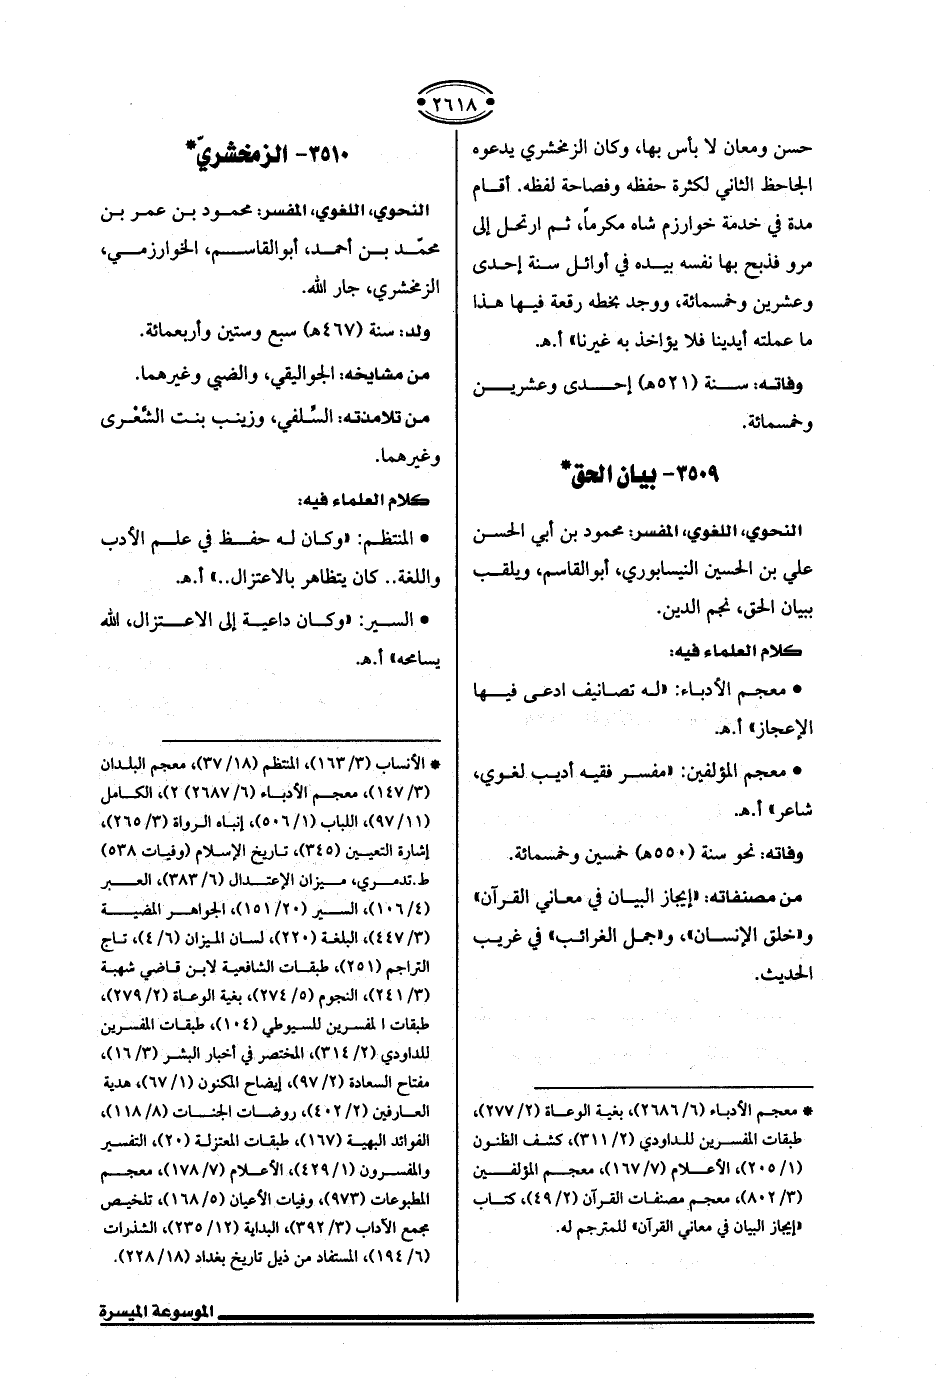 ٢٦١٨
حسن ومعان لا بأس بها، وكان الزمخشري يدعوه
الجاحظ الثاني لكثرة حفظه وفصاحة لفظه. أقام
مدة في خدمة خوارزم شاه مكرماً، ثم ارتحل إلى
مرو فذبح بها نفسه بيده في أوائل سنة إحدى
وعشرين وخمسمائة، ووجد بخطه رقعة فيها هذا
ما عملته أيدينا فلا يؤاخذ به غيرنا» أ.هـ.
وفاته: سنة (٥٢١هـ) إحدى وعشرين
وخمسمائة.
٣٥٠٩- بيان الحق*
النحوي، اللغوي، المفسر: محمود بن أبي الحسن
علي بن الحسين النيسابوري، أبو القاسم، ويلقب
ببيان الحق، نجم الدين.
كلام العلماء فيه:
• معجم الأدباء: «له تصانيف ادعى فيها
الإعجاز» أ.هـ.
• معجم المؤلفين: «مفسر فقيه أديب لغوي،
شاعر» أ.هـ.
وفاته: نحو سنة (٥٥٠هـ) خمسين وخمسمائة.
من مصنفاته: «إيجاز البيان في معاني القرآن»
و«خلق الإنسان»، و«جمل الغرائب» في غريب
الحديث.
* معجم الأدباء (٦/ ٢٦٨٦)، بغية الوعاة (٢/ ٢٧٧)،
طبقات المفسرين للداودي (٢/ ٣١١)، كشف الظنون
(١/ ٢٠٥)، الأعلام (٧/ ١٦٧)، معجم المؤلفين
(٣/ ٨٠٢)، معجم مصنفات القرآن (٢/ ٤٩)، كتاب
«إيجاز البيان في معاني القرآن» للمترجم له.
٣٥١٠- الزمخشريّ*
النحوي، اللغوي، المفسر: محمود بن عمر بن
محمّد بن أحمد، أبو القاسم، الخوارزمي،
الزمخشري، جار الله.
ولد: سنة (٤٦٧هـ) سبع وستين وأربعمائة.
من مشايخه: الجواليقي، والضبي وغيرهما.
من تلامذته: السِّلفي، وزينب بنت الشَّعْرى
وغيرهما.
كلام العلماء فيه:
• المنتظم: «وكان له حفظ في علم الأدب
واللغة.. كان يتظاهر بالاعتزال..» أ.هـ.
• السير: «وكان داعية إلى الاعتزال، الله
يسامحه» أ.هـ.
* الأنساب (٣/ ١٦٣)، المنتظم (١٨/ ٣٧)، معجم البلدان
(٣/ ١٤٧)، معجم الأدباء (٦/ ٢٦٨٧) ٢)، الكامل
(١١/ ٩٧)، اللباب (١/ ٥٠٦)، إنباه الرواة (٣/ ٢٦٥)،
إشارة التعيين (٣٤٥)، تاريخ الإسلام (وفيات ٥٣٨)
ط.تدمري، ميزان الإعتدال (٦/ ٣٨٣)، العبر
(٤/ ١٠٦)، السير (٢٠/ ١٥١)، الجواهر المضية
(٣/ ٤٤٧)، البلغة (٢٢٠)، لسان الميزان (٦/ ٤)، تاج
التراجم (٢٥١)، طبقات الشافعية لابن قاضي شهبة
(٣/ ٢٤١)، النجوم (٥/ ٢٧٤)، بغية الوعاة (٢/ ٢٧٩)،
طبقات المفسرين للسيوطي (١٠٤)، طبقات المفسرين
للداودي (٢/ ٣١٤)، المختصر في أخبار البشر (٣/ ١٦)،
مفتاح السعادة (٢/ ٩٧)، إيضاح المكنون (١/ ٦٧)، هدية
العارفين (٢/ ٤٠٢)، روضات الجنات (٨/ ١١٨)،
الفوائد البهية (١٦٧)، طبقات المعتزلة (٢٠)، التفسير
والمفسرون (١/ ٤٢٩)، الأعلام (٧/ ١٧٨)، معجم
المطبوعات (٩٧٣)، وفيات الأعيان (٥/ ١٦٨)، تلخيص
مجمع الآداب (٣/ ٣٩٢)، البداية (١٢/ ٢٣٥)، الشذرات
(٦/ ١٩٤)، المستفاد من ذيل تاريخ بغداد (١٨/ ٢٢٨).
الموسوعة الميسرة